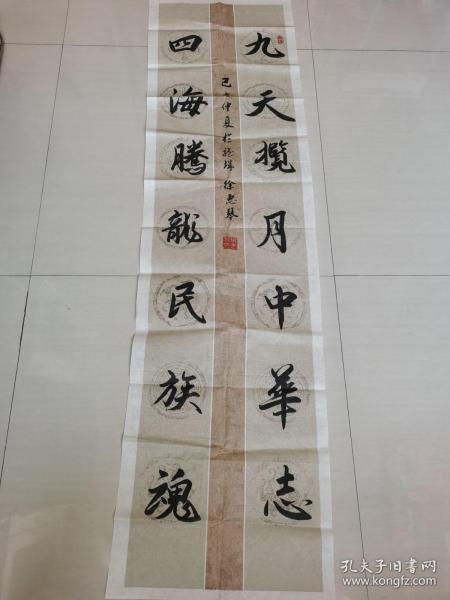 九天揽月中華志
四海騰龍民族魂
仲夏於
徐惠琴
孔夫子旧书网
www.kongfz.com